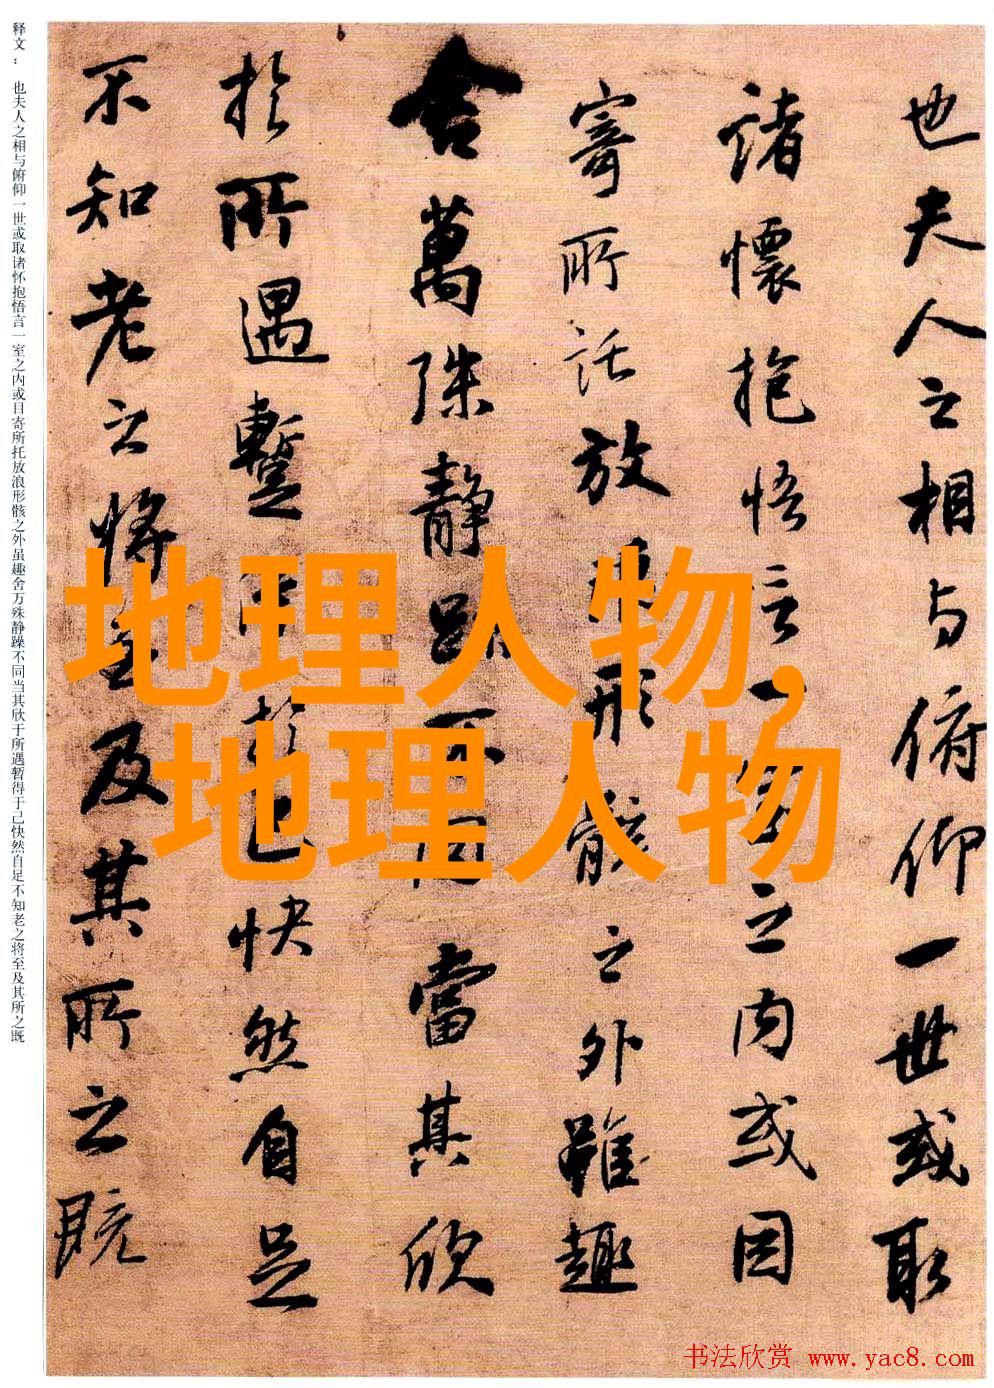 也夫人之相与俯仰一世或取
諸懷抱悟言一室之内或因
寄所託放浪形骸之外雖趣
舍萬殊静躁不同當其欣
於所遇暫得於己快然自足
不知老之将至及其所之既
释文： 也夫人之相与俯仰一世或取诸怀抱悟言一室之内或目寄所托放浪形骸之外虽趣舍万殊静躁不同当其欣于所遇暂得于己快然自足不知老之将至及其所之既
地理人物,
地理人物
书法欣赏 www.yac8.com